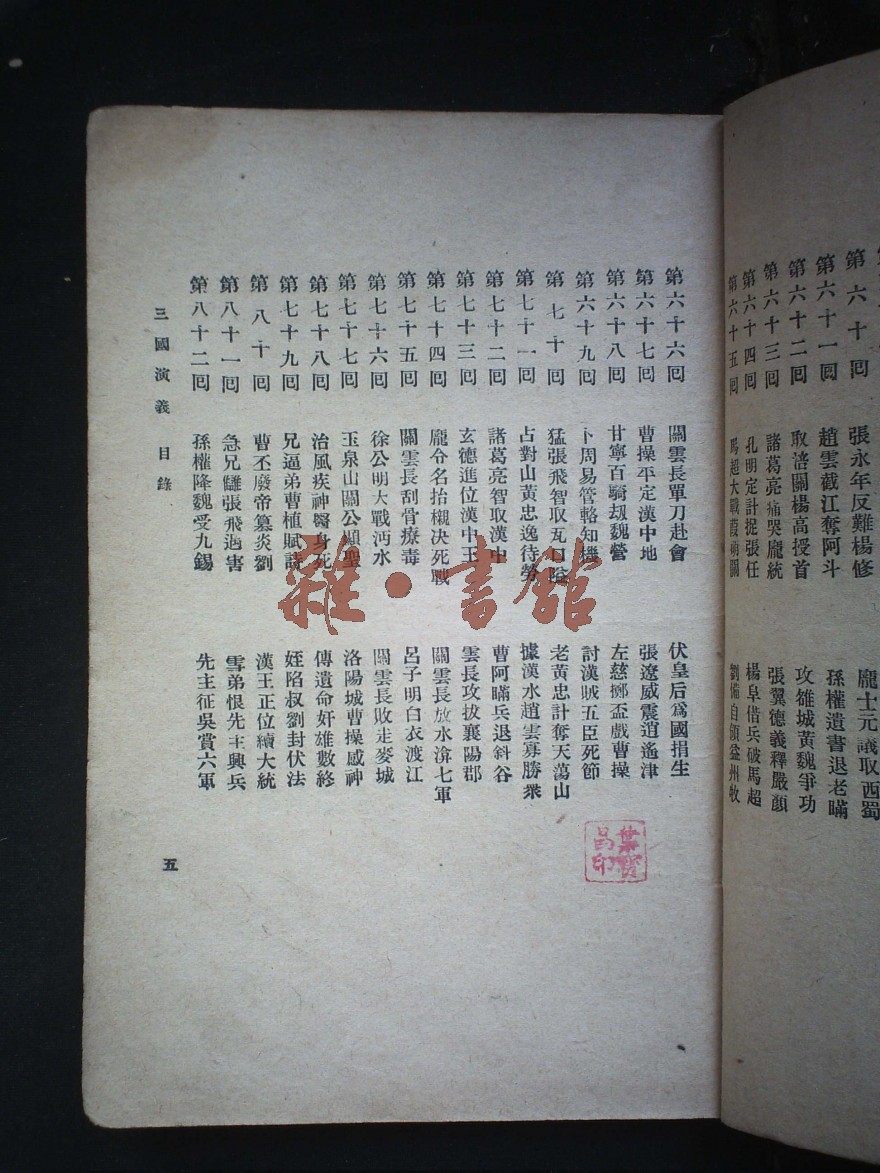 第六十回　張永年反難楊修　龐士元議取西蜀
第六十一回　趙雲截江奪阿斗　孫權遺書退老瞞
第六十二回　取涪關楊高授首　攻雒城黃魏爭功
第六十三回　諸葛亮痛哭龐統　張翼德義釋嚴顏
第六十四回　孔明定計捉張任　楊阜借兵破馬超
第六十五回　馬超大戰葭萌關　劉備自領益州牧
第六十六回　關雲長單刀赴會　伏皇后爲國捐生
第六十七回　曹操平定漢中地　張遼威震逍遙津
第六十八回　甘寧百騎刼魏營　左慈擲盃戲曹操
第六十九回　卜周易管輅知機　討漢賊五臣死節
第七十回　猛張飛智取瓦口隘　老黃忠計奪天蕩山
第七十一回　占對山黃忠逸待勞　據漢水趙雲寡勝衆
第七十二回　諸葛亮智取漢中　曹阿瞞兵退斜谷
第七十三回　玄德進位漢中王　雲長攻拔襄陽郡
第七十四回　龐令名抬櫬決死戰　關雲長放水渰七軍
第七十五回　關雲長刮骨療毒　呂子明白衣渡江
第七十六回　徐公明大戰沔水　關雲長敗走麥城
第七十七回　玉泉山關公顯聖　洛陽城曹操感神
第七十八回　治風疾神醫身死　傳遺命奸雄數終
第七十九回　兄逼弟曹植賦詩　姪陷叔劉封伏法
第八十回　曹丕廢帝篡炎劉　漢王正位續大統
第八十一回　急兄讎張飛遇害　雪弟恨先主興兵
第八十二回　孫權降魏受九錫　先主征吳賞六軍
三國演義　目錄
五
雜·書館